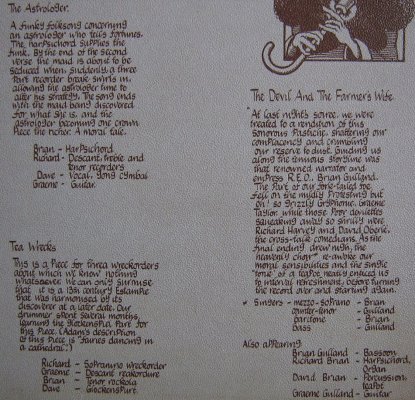 The Astrologer.
A funky folksong concerning
an astrologer who tells fortunes.
The harpsichord supplies the
funk. By the end of the second
verse the maid is about to be
seduced when, suddenly, a three
part recorder break shifts in,
allowing the astrologer time to
alter his strategy. The song ends
with the maid being discovered
for what she is, and the
astrologer becoming one crown
piece the richer. A moral tale.
Brian - Harpsichord
Richard - Descant, treble and
tenor recorders
Dave - Vocal, gong cymbal
Graeme - Guitar.
Tea Wrecks
This is a piece for three wreckorders
about which we know nothing
whatsoever. We can only surmise
that it is a 13th century Estampie
that was harmonised by its
discoverer at a later date. Our
drummer spent several months
learning the glockenspiel part for
this piece. (Adam's description
of this piece is "fairies dancing in
a cathedral".)
Richard - Sopranino wreckorder
Graeme - Descant reakordure
Brian - Tenor rockola
Dave - Glockenspurt.
The Devil And The Farmer's Wife
"At last night's soiree, we were
treated to a rendition of this
sonorous pastiche, shattering our
complacency and crumbling
our reserve to dust. Guiding us
along the tenuous storyline was
that renowned narrator and
empress R.E.D., Brian Gulland.
The part of our fork-tailed foe
fell on the mildly protesting but
oh! so grizzly Gryphone, Graeme
Taylor while those poor devilettes
squeaking away so shrilly were
Richard Harvey and David Oberlé,
the cross-talk comedians. As the
final ending drew nigh, the
heavenly choir* re-awoke our
moral sensibilities and the single
'tone' of a teapot neatly enticed us
to interval refreshment, before turning
the record over and starting again.
* Singers - mezzo-soprano - Brian
counter-tenor - Gulland
baritone - Brian
bass - Gulland
Also appearing
Brian Gulland - Bassoon
Richard Brian - Harpsichord,
Organ
David Brian - Percussion,
teapot
Graeme Gulland - Guitar